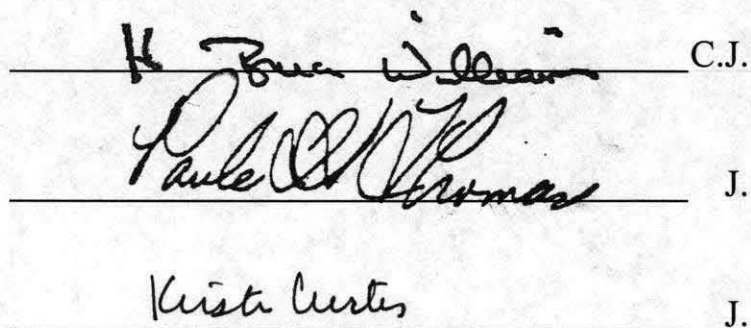 H Bruce Williams C.J.
Paula A. M. Thomas J.
Kirsten Curtes J.